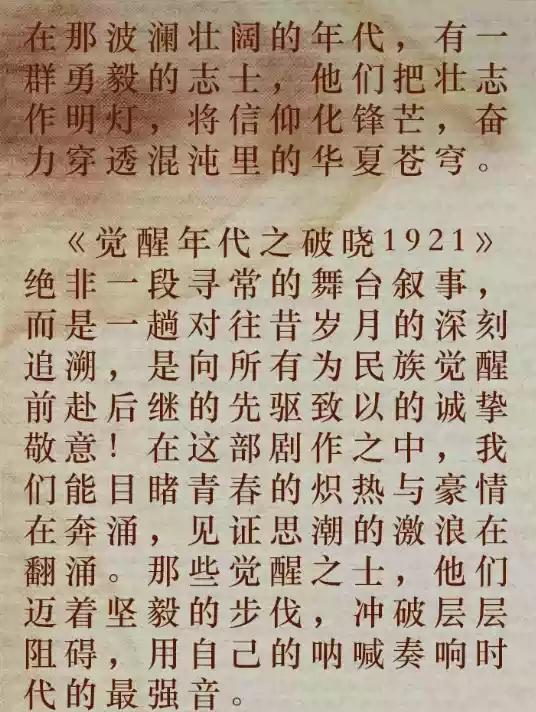 在那波澜壮阔的年代，有一
群勇毅的志士，他们把壮志
作明灯，将信仰化锋芒，奋
力穿透混沌里的华夏苍穹。
《觉醒年代之破晓1921》
绝非一段寻常的舞台叙事，
而是一趟对往昔岁月的深刻
追溯，是向所有为民族觉醒
前赴后继的先驱致以的诚挚
敬意！在这部剧作之中，我
们能目睹青春的炽热与豪情
在奔涌，见证思潮的激浪在
翻涌。那些觉醒之士，他们
迈着坚毅的步伐，冲破层层
阻碍，用自己的呐喊奏响时
代的最强音。